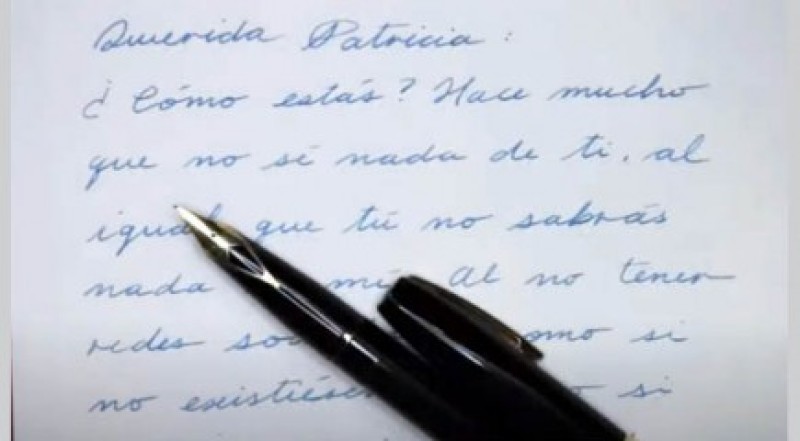 Querida Patricia:
¿Cómo estás? Hace mucho
que no sé nada de ti, al
igual que tú no sabrás
nada mí. Al no tener
redes si
no si